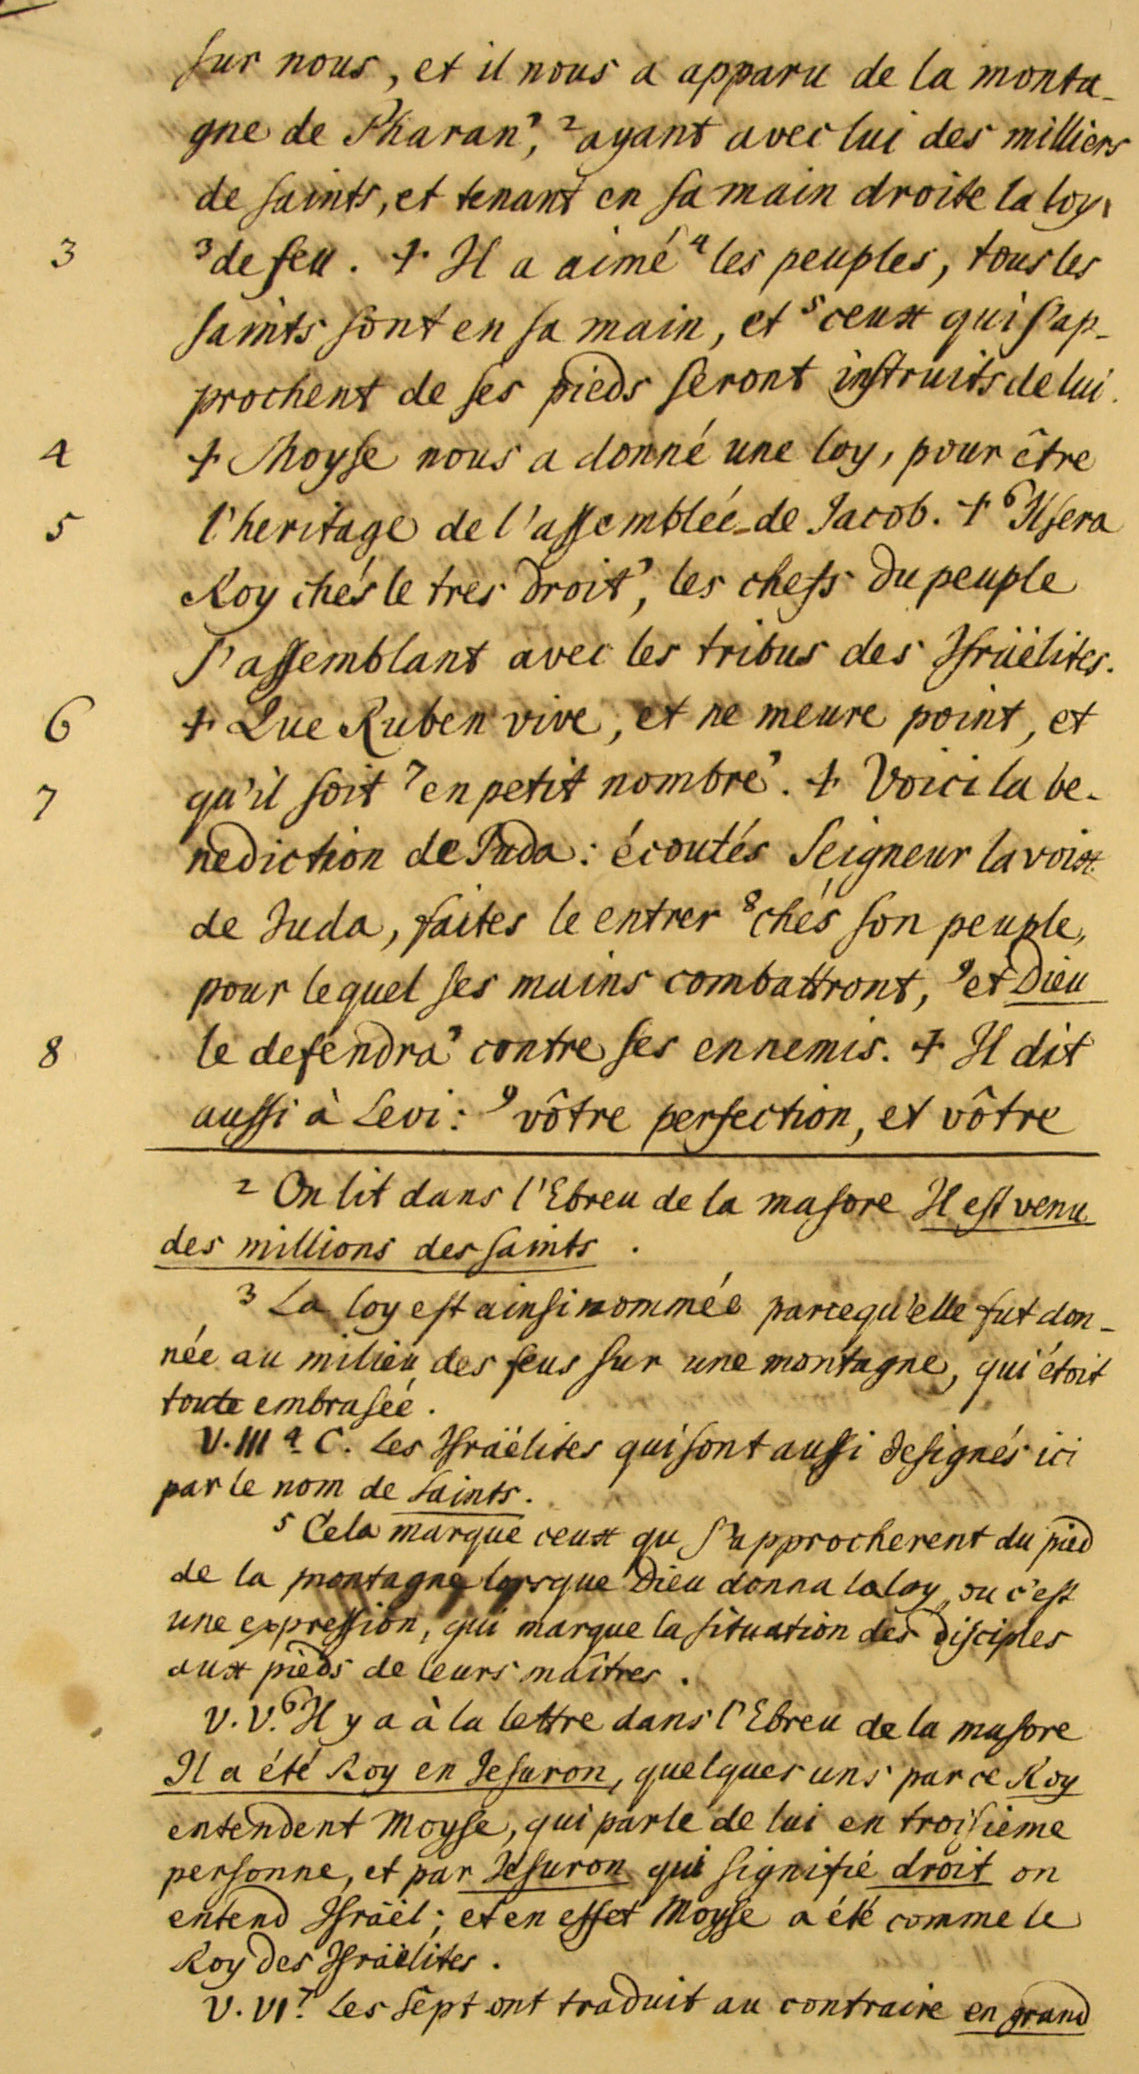 sur nous, et il nous a apparu de la monta-
gne de Pharan', ²ayant avec lui des milliers
de saints, et tenant en sa main droite la loy
3 ³de feu. + Il a aimé ⁴les peuples, tous les
saints sont en sa main, et ⁵ceux qui s'ap-
prochent de ses pieds seront instruits de lui.
4 + Moyse nous a donné une loy, pour être
5 l'heritage de l'assemblée de Jacob. + ⁶Il sera
Roy chés le tres droit', les chefs du peuple
s'assemblant avec les tribus des Israëlites.
6 + Que Ruben vive, et ne meure point, et
7 qu'il soit ⁷en petit nombre'. + Voici la be-
nediction de Juda: écoutés Seigneur la voix
de Juda, faites le entrer ⁸chés son peuple,
pour lequel ses mains combattront, ⁹et Dieu
8 le defendra' contre ses ennemis. + Il dit
aussi à Levi: ⁹vôtre perfection, et vôtre
² On lit dans l'Ebreu de la masore Il est venu
des millions des saints.
³ La loy est ainsi nommée parcequ'elle fut don-
née au milieu des feus sur une montagne, qui étoit
toute embrasée.
V.III ⁴. C. les Israëlites qui sont aussi designés ici
par le nom de saints.
⁵ Cela marque ceux qu s'approcherent du pied
de la montagne lorsque Dieu donna la loy, ou c'est
une expression, qui marque la situation des disciples
aux pieds de leurs maîtres.
V. V. ⁶Il y a à la lettre dans l'Ebreu de la masore
Il a été Roy en Jesuron, quelques uns par ce Roy
entendent Moyse, qui parle de lui en troisieme
personne, et par Jesuron qui signifie droit on
entend Israël; et en effet Moyse a été comme le
Roy des Israëlites.
V. VI ⁷. les sept ont traduit au contraire en grand